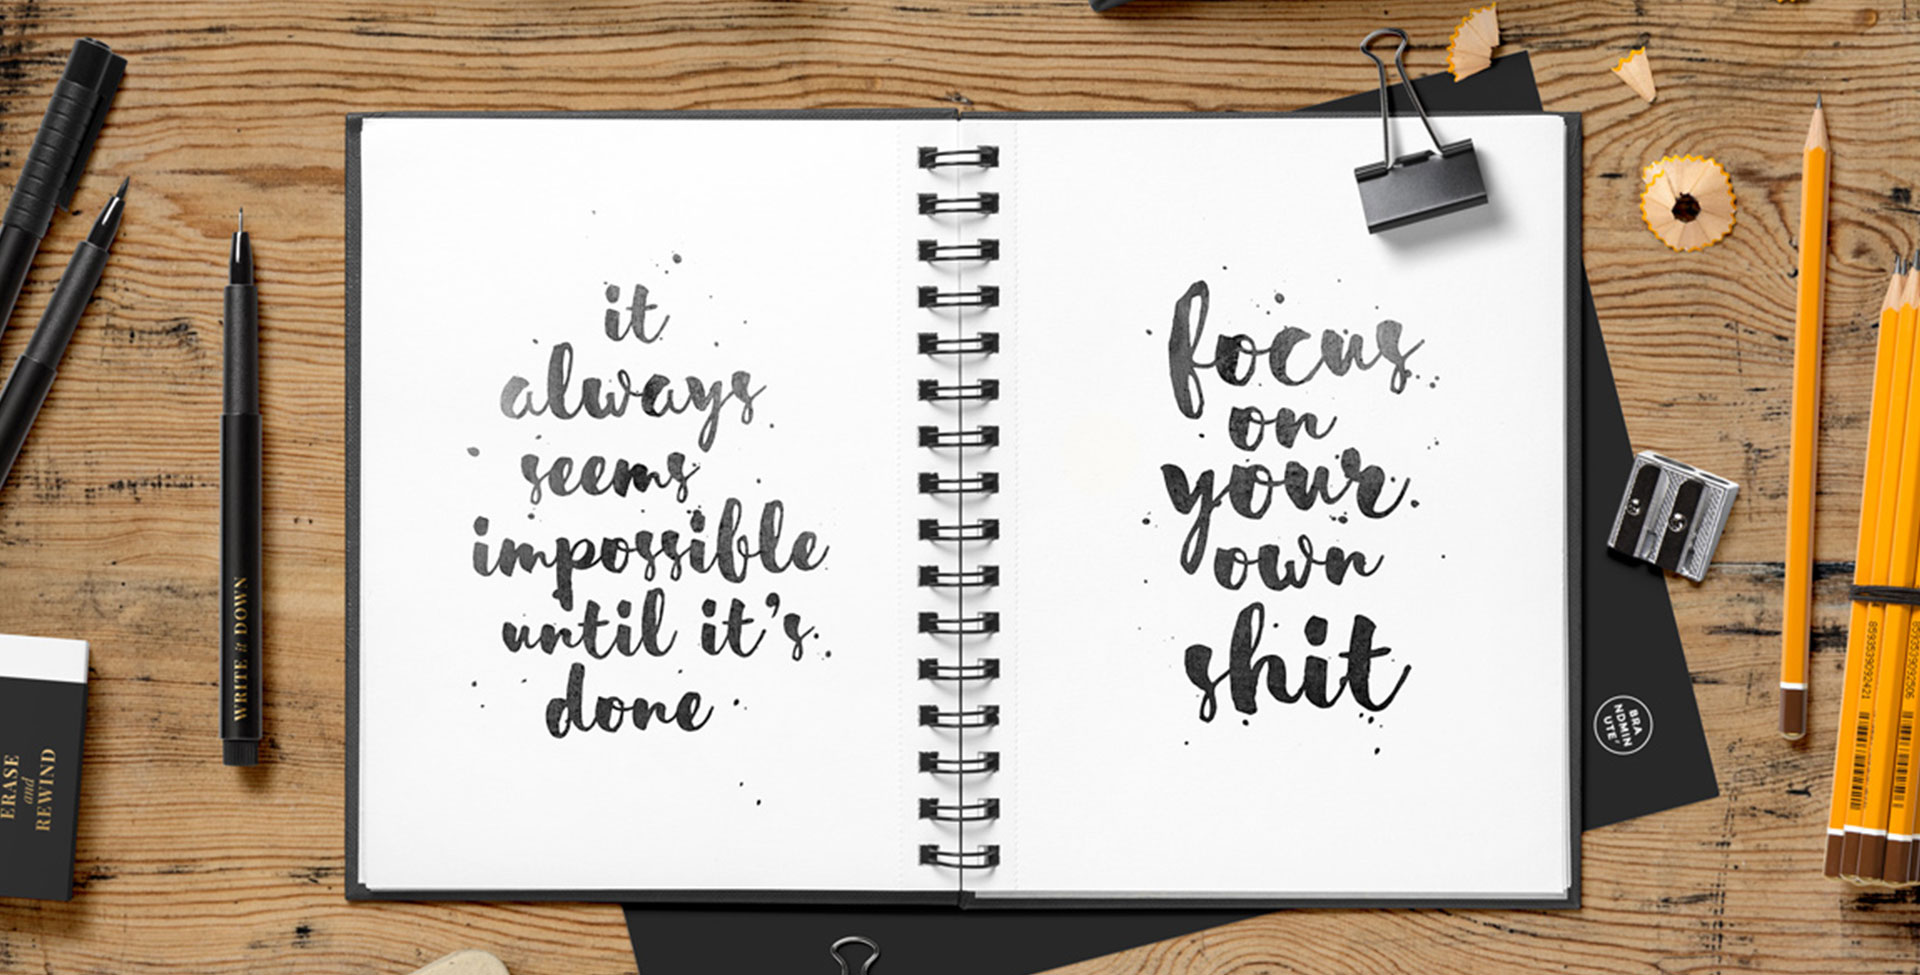 it
always
seems
impossible
until it's
done
focus
on
your
own
shit
WRITE it DOWN
ERASE
and
REWIND
BRA
NDMIN
UTE'
8593539092421
8593539092506